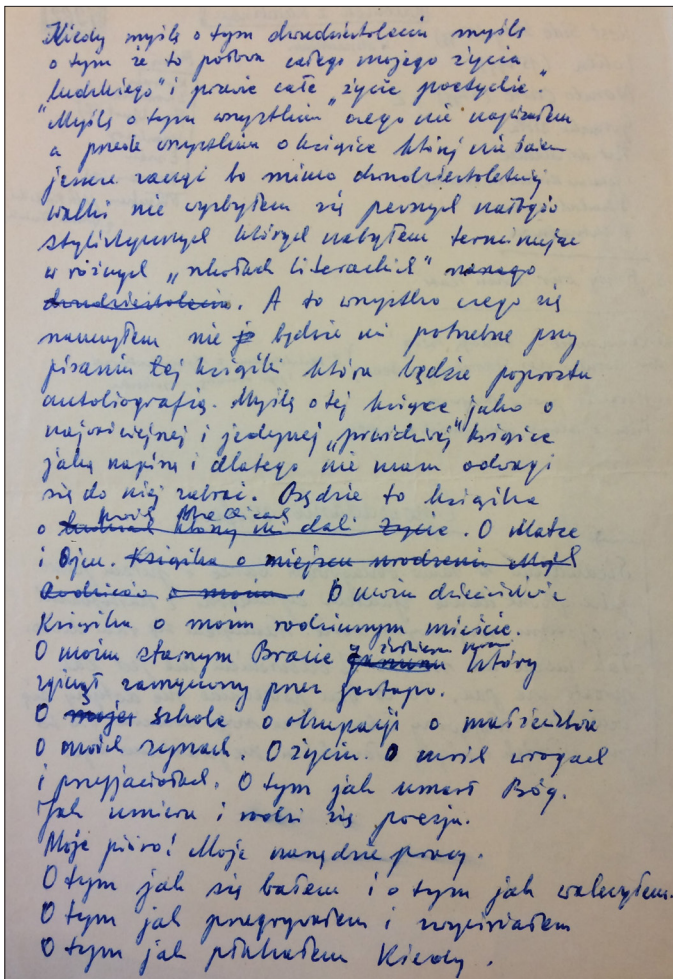 Kiedy myślę o tym dwudziestoleciu myślę
o tym że to połowa całego mojego życia
„ludzkiego" i prawie całe „życie poetyckie."
Myślę o tym wszystkim czego nie napisałem
a przede wszystkim o książce której nie śmiem
jeszcze zacząć bo mimo dwudziestoletniej
walki nie wyzbyłem się pewnych nałogów
stylistycznych których nabyłem terminując
w różnych „szkołach literackich" naszego
dwudziestolecia. A to wszystko czego się
nauczyłem nie będzie mi potrzebne przy
pisaniu tej książki która będzie poprostu
autobiografią. Myślę o tej książce jako o
najwłaściwszej i jedynej „prawdziwej" książce
jaką napiszę i dlatego nie mam odwagi
się do niej zabrać. Będzie to książka
o moich bliskich
którzy mi dali życie. O Matce
i Ojcu. Książka o miejscu urodzenia Mojch
Rodziców o moim. O moim dzieciństwie
Książka o moim rodzinnym mieście.
O moim starszym Bracie który
zginął zamęczony przez gestapo.
O mojej szkole o okupacji o małżeństwie
O moich synach. O życiu. O moich wrogach
i przyjaciołach. O tym jak umarł Bóg.
Jak umiera i rodzi się poezja.
Moje pióro! Moje narzędzie pracy.
O tym jak się bałem i o tym jak walczyłem.
O tym jak przegrywałem i zwyciężałem
O tym jak płakałem Kiedy.